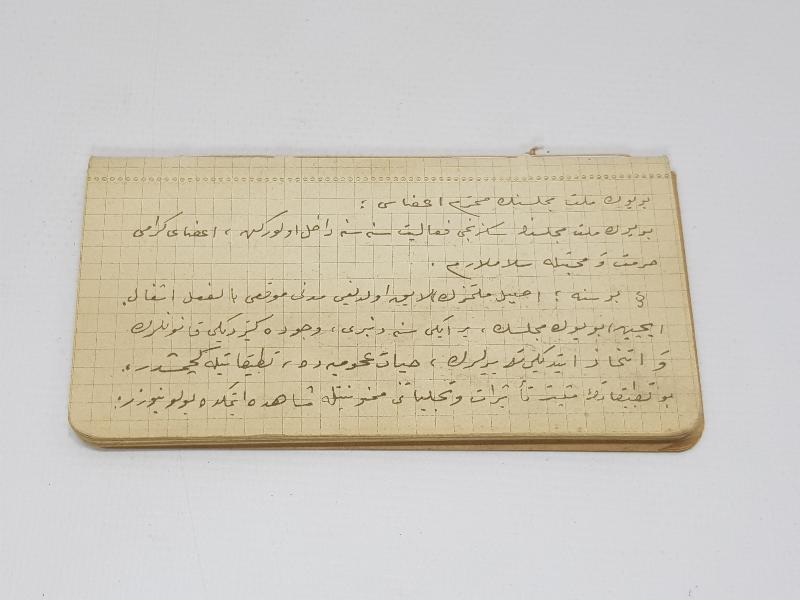 بویوك ملت مجلسنك محترم اعضاسی :
بویوك ملت مجلسنك سكزنجی فعالیت سنه سنه داخل اولوركن ، اعضای كرامی
حرمت و محبتله سلاملارم .
بو سنه ; اصیل ملتمزك لایق اولدیغی مدنی موقعی بالفعل اشغال
ایچین ، بویوك مجلسك ، بر ایكی سنه دنبری ، وجوده كتیردیكی قانونلرك
و اتخاذ ایتدیكی تدبیرلرك ، حیات عمومیه ده ، تطبیقاتیله كچمشدر .
بو تطبیقاتك مثبت تأثیرات و تجلیاتنی ممنونیتله مشاهده ایتمكده بولونیورز .